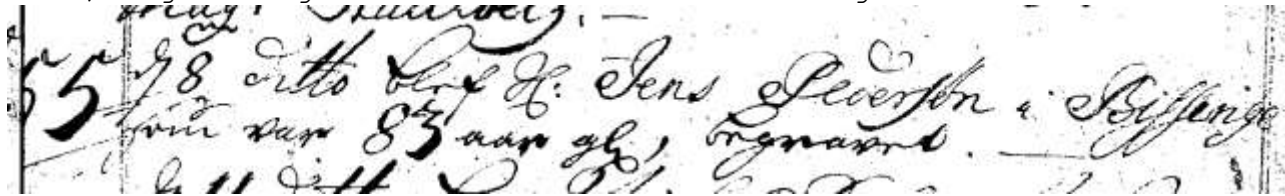 55 d 8 ditto blef H: Jens Pedersøn i Bissinge
som var 83 aar gl, begravet. —